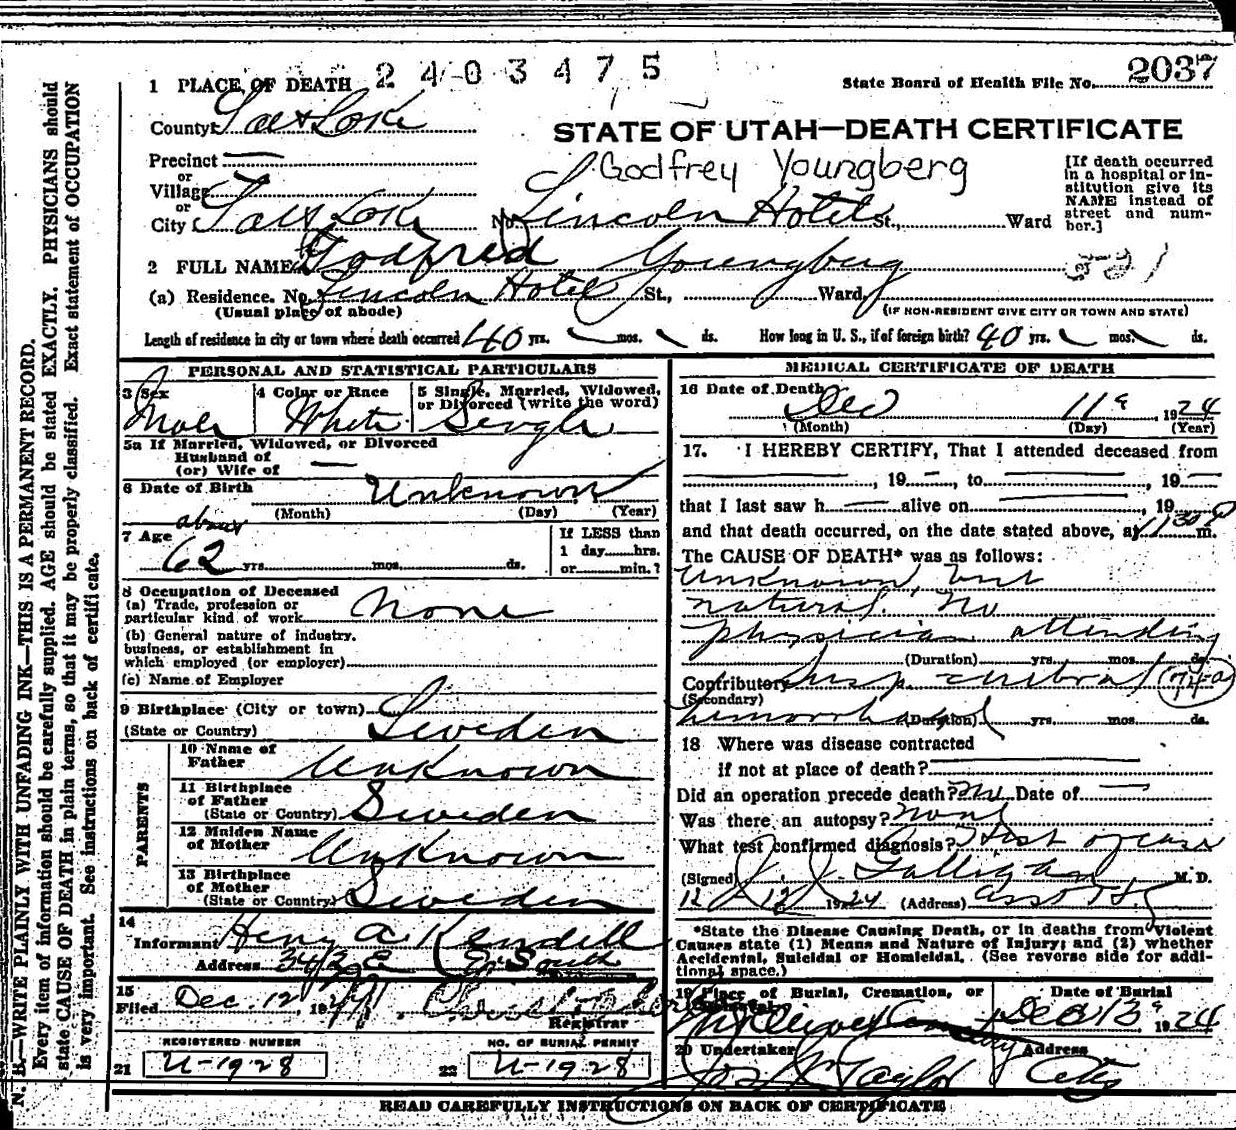 2403475
1 PLACE OF DEATH
State Board of Health File No. 2037
County Salt Lake
STATE OF UTAH—DEATH CERTIFICATE
Precinct
Godfrey Youngberg
[If death occurred in a hospital or institution give its NAME instead of street and number.]
or
Village
or
City Salt Lake No. Lincoln Hotel St., Ward
2 FULL NAME Godfred Youngberg
521
(a) Residence. No. Lincoln Hotel St., Ward,
(Usual place of abode) (IF NON-RESIDENT GIVE CITY OR TOWN AND STATE)
Length of residence in city or town where death occurred 40 yrs. mos. ds. How long in U. S., if of foreign birth? 40 yrs. mos. ds.
PERSONAL AND STATISTICAL PARTICULARS
3 Sex
Male
4 Color or Race
White
5 Single, Married, Widowed, or Divorced (write the word)
Single
5a If Married, Widowed, or Divorced
Husband of
(or) Wife of —
6 Date of Birth Unknown
(Month) (Day) (Year)
7 Age about
62 yrs. mos. ds.
If LESS than
1 day......hrs.
or......min.?
8 Occupation of Deceased
(a) Trade, profession or
particular kind of work None
(b) General nature of industry,
business, or establishment in
which employed (or employer)
(c) Name of Employer
9 Birthplace (City or town)
(State or Country) Sweden
PARENTS
10 Name of
Father Unknown
11 Birthplace
of Father
(State or Country) Sweden
12 Maiden Name
of Mother Unknown
13 Birthplace
of Mother
(State or Country) Sweden
14
Informant Henry A Kendell
Address 342 E South
15
Filed Dec. 12 1924
Registrar
REGISTERED NUMBER
21 U-1928
NO. OF BURIAL PERMIT
22 U-1928
MEDICAL CERTIFICATE OF DEATH
16 Date of Death
Dec 11 1924
(Month) (Day) (Year)
17. I HEREBY CERTIFY, That I attended deceased from
, 19 —, to , 19 —
that I last saw h alive on , 19
and that death occurred, on the date stated above, at 1130 P m.
The CAUSE OF DEATH* was as follows:
Unknown, but
natural. No
physician attending
(Duration) yrs. mos. ds.
Contributory Susp. cerebral 74a
(Secondary)
hemorrhage (Duration) yrs. mos. ds.
18 Where was disease contracted
if not at place of death?
Did an operation precede death? No Date of —
Was there an autopsy? None
What test confirmed diagnosis? Hist of case
(Signed) J. J. Galligan M. D.
12 - 12 1924 (Address)
*State the Disease Causing Death, or in deaths from Violent
Causes state (1) Means and Nature of Injury; and (2) whether
Accidental, Suicidal or Homicidal. (See reverse side for addi-
tional space.)
19 Place of Burial, Cremation, or
Mt Olivet Cemetery
Date of Burial
Dec 13 1924
20 Undertaker
Jos Wm Taylor
Address
City
READ CAREFULLY INSTRUCTIONS ON BACK OF CERTIFICATE
N. B.—WRITE PLAINLY WITH UNFADING INK—THIS IS A PERMANENT RECORD.
Every item of information should be carefully supplied. AGE should be stated EXACTLY. PHYSICIANS should
state CAUSE OF DEATH in plain terms, so that it may be properly classified. Exact statement of OCCUPATION
is very important. See instructions on back of certificate.